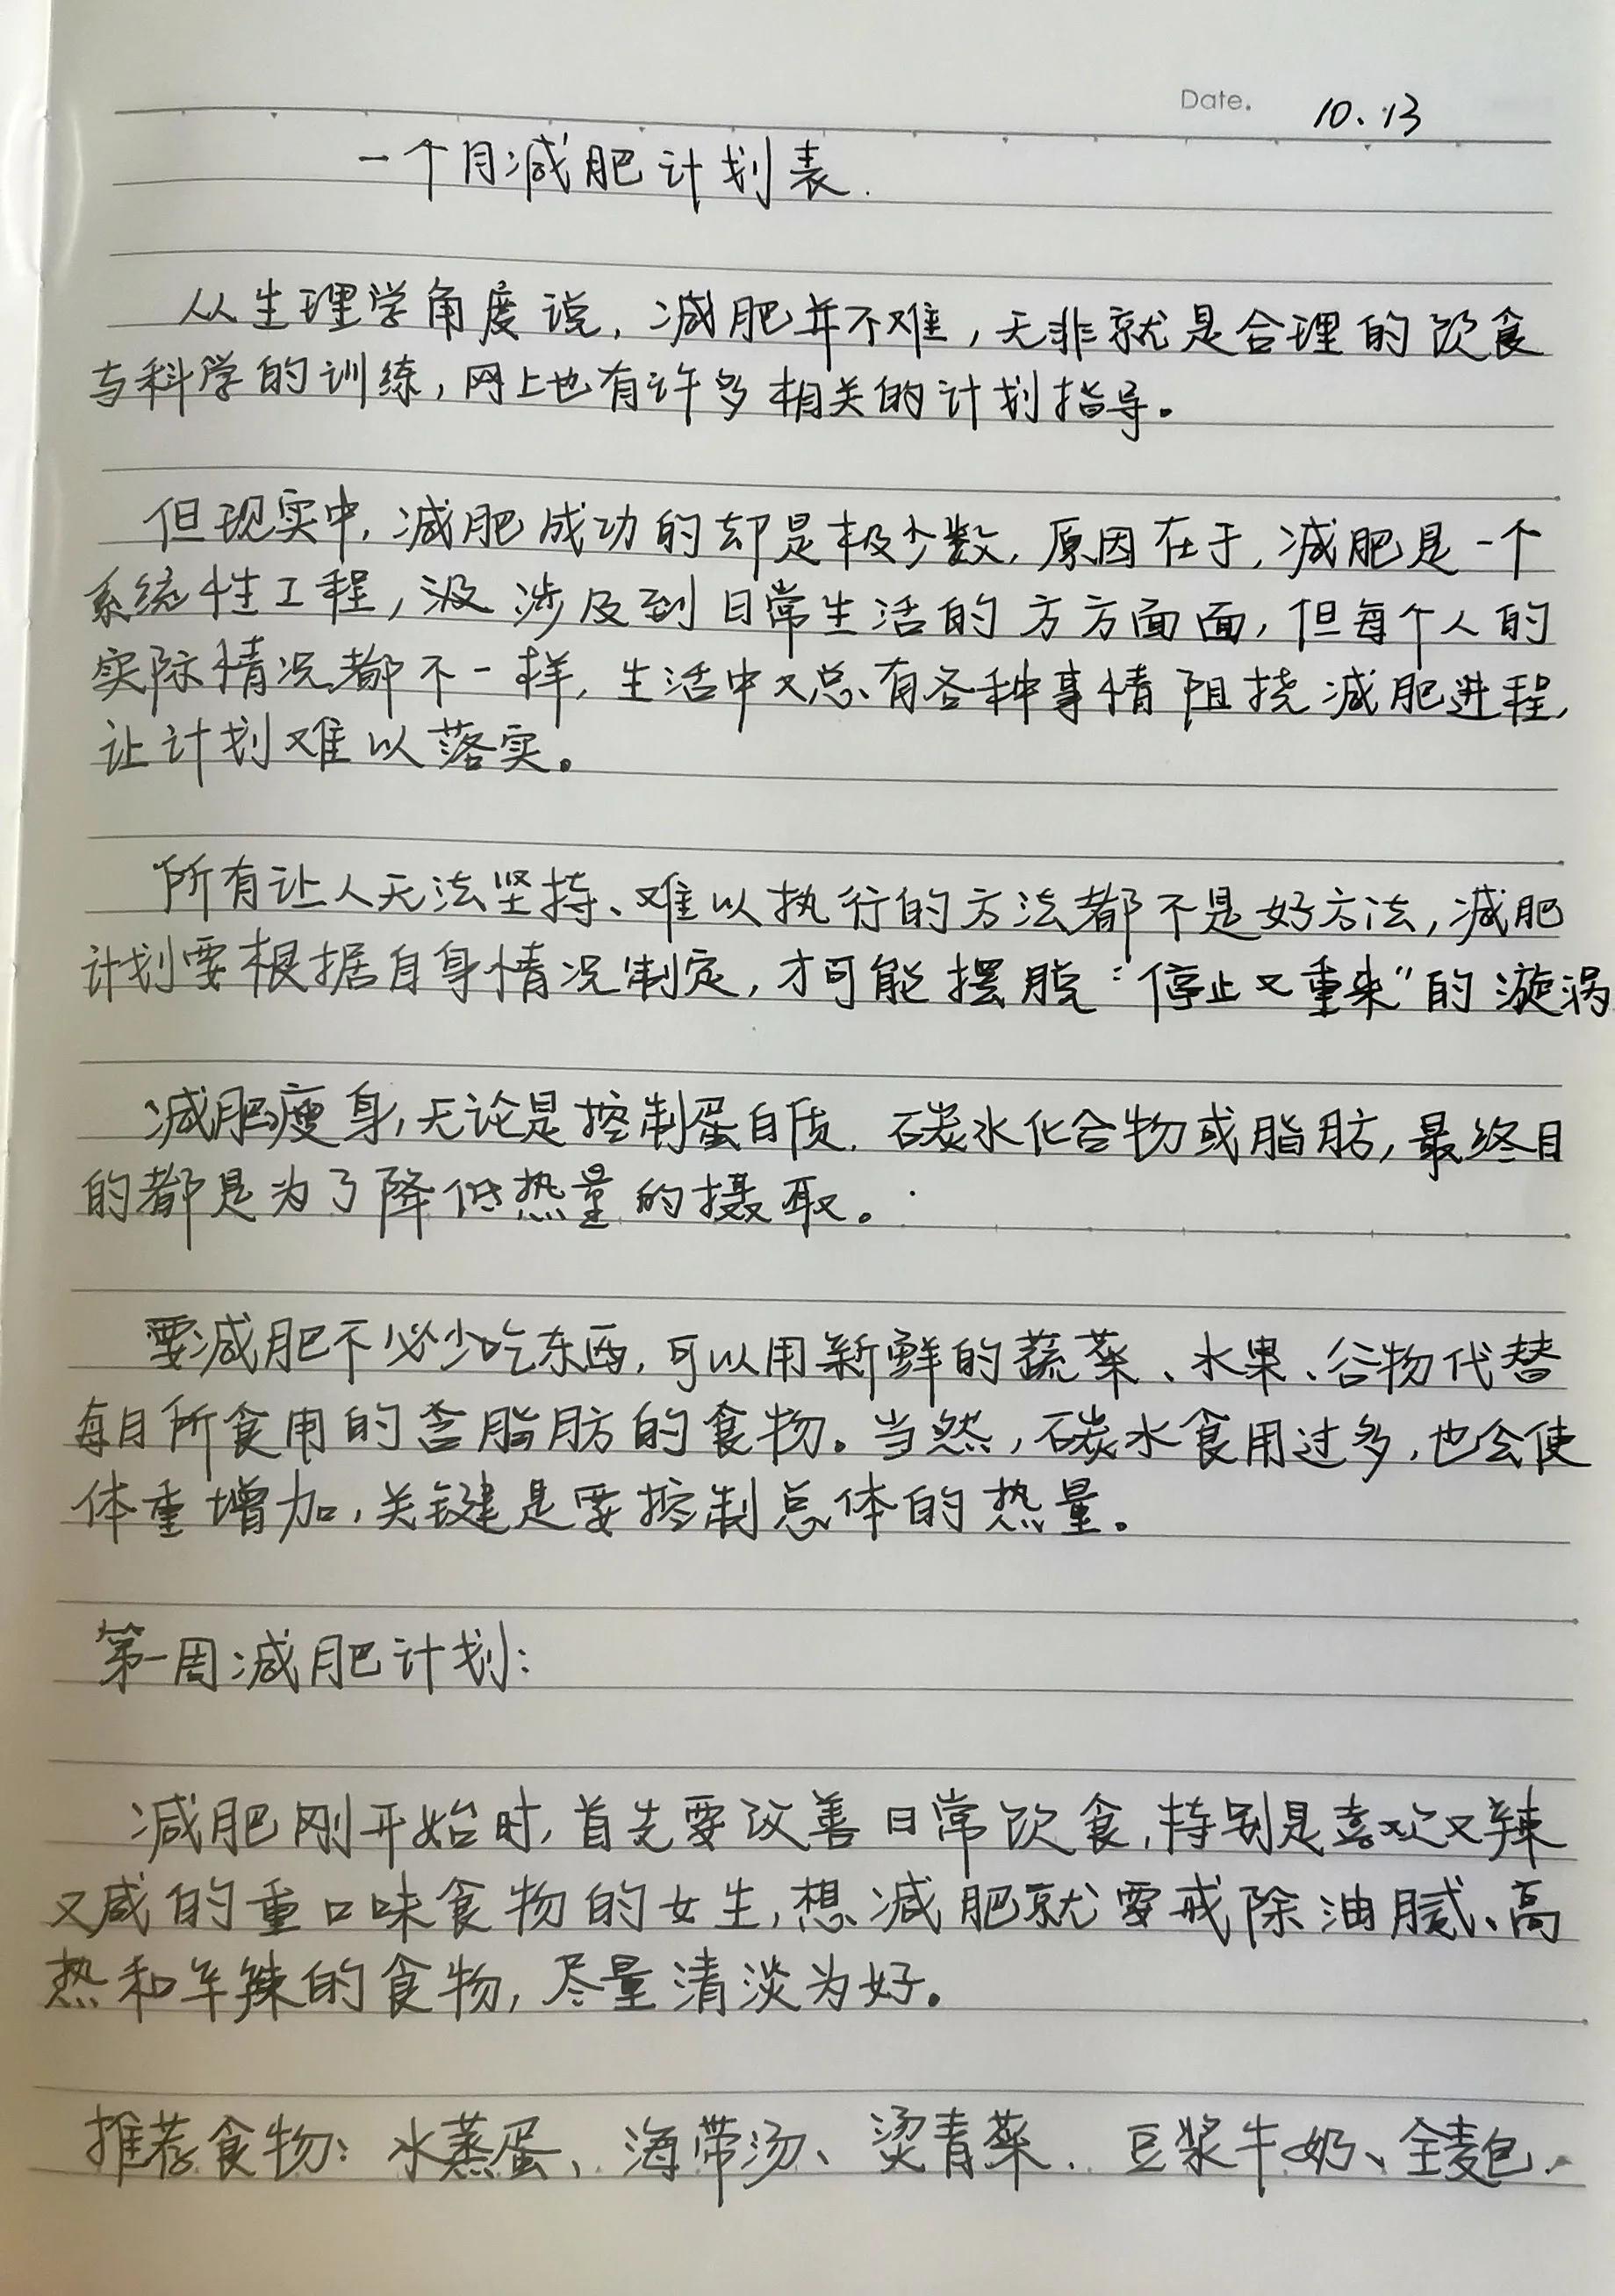 Date. 10.13
一个月减肥计划表.
从生理学角度说,减肥并不难,无非就是合理的饮食
与科学的训练,网上也有许多相关的计划指导。
但现实中,减肥成功的却是极少数,原因在于,减肥是一个
系统性工程,没涉及到日常生活的方方面面,但每个人的
实际情况都不一样,生活中又总有各种事情阻挠减肥进程,
让计划难以落实。
所有让人无法坚持、难以执行的方法都不是好方法,减肥
计划要根据自身情况制定,才可能摆脱“停止又重来”的漩涡
减肥瘦身,无论是控制蛋白质、碳水化合物或脂肪,最终目
的都是为了降低热量的摄取。
要减肥不必少吃东西,可以用新鲜的蔬菜、水果、谷物代替
每日所食用的含脂肪的食物。当然,碳水食用过多,也会使
体重增加,关键是要控制总体的热量。
第一周减肥计划:
减肥刚开始时,首先要改善日常饮食,特别是喜欢又辣
又咸的重口味食物的女生,想减肥就要戒除油腻、高
热和辛辣的食物,尽量清淡为好。
推荐食物:水蒸蛋、海带汤、烫青菜、豆浆牛奶、全麦包、